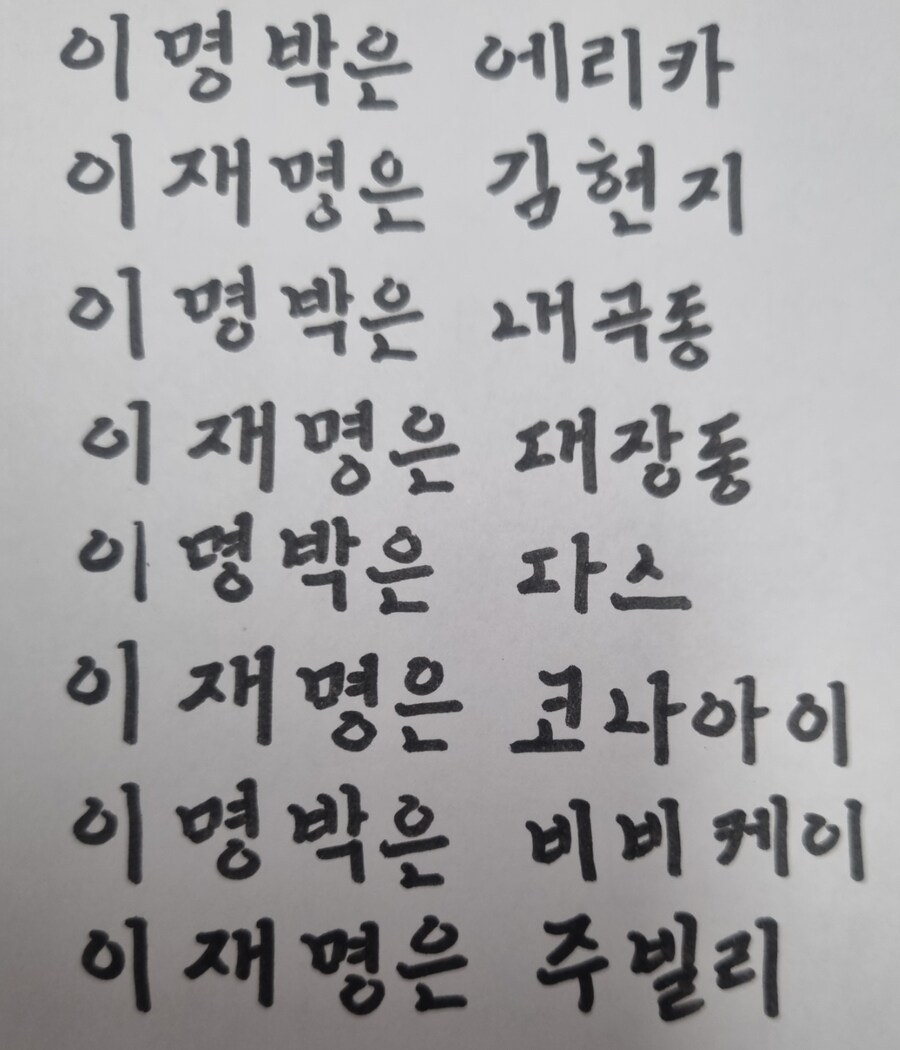 이명박은 에리카
이재명은 김현지
이명박은 내곡동
이재명은 대장동
이명박은 다스
이재명은 코나아이
이명박은 비비케이
이재명은 주빌리